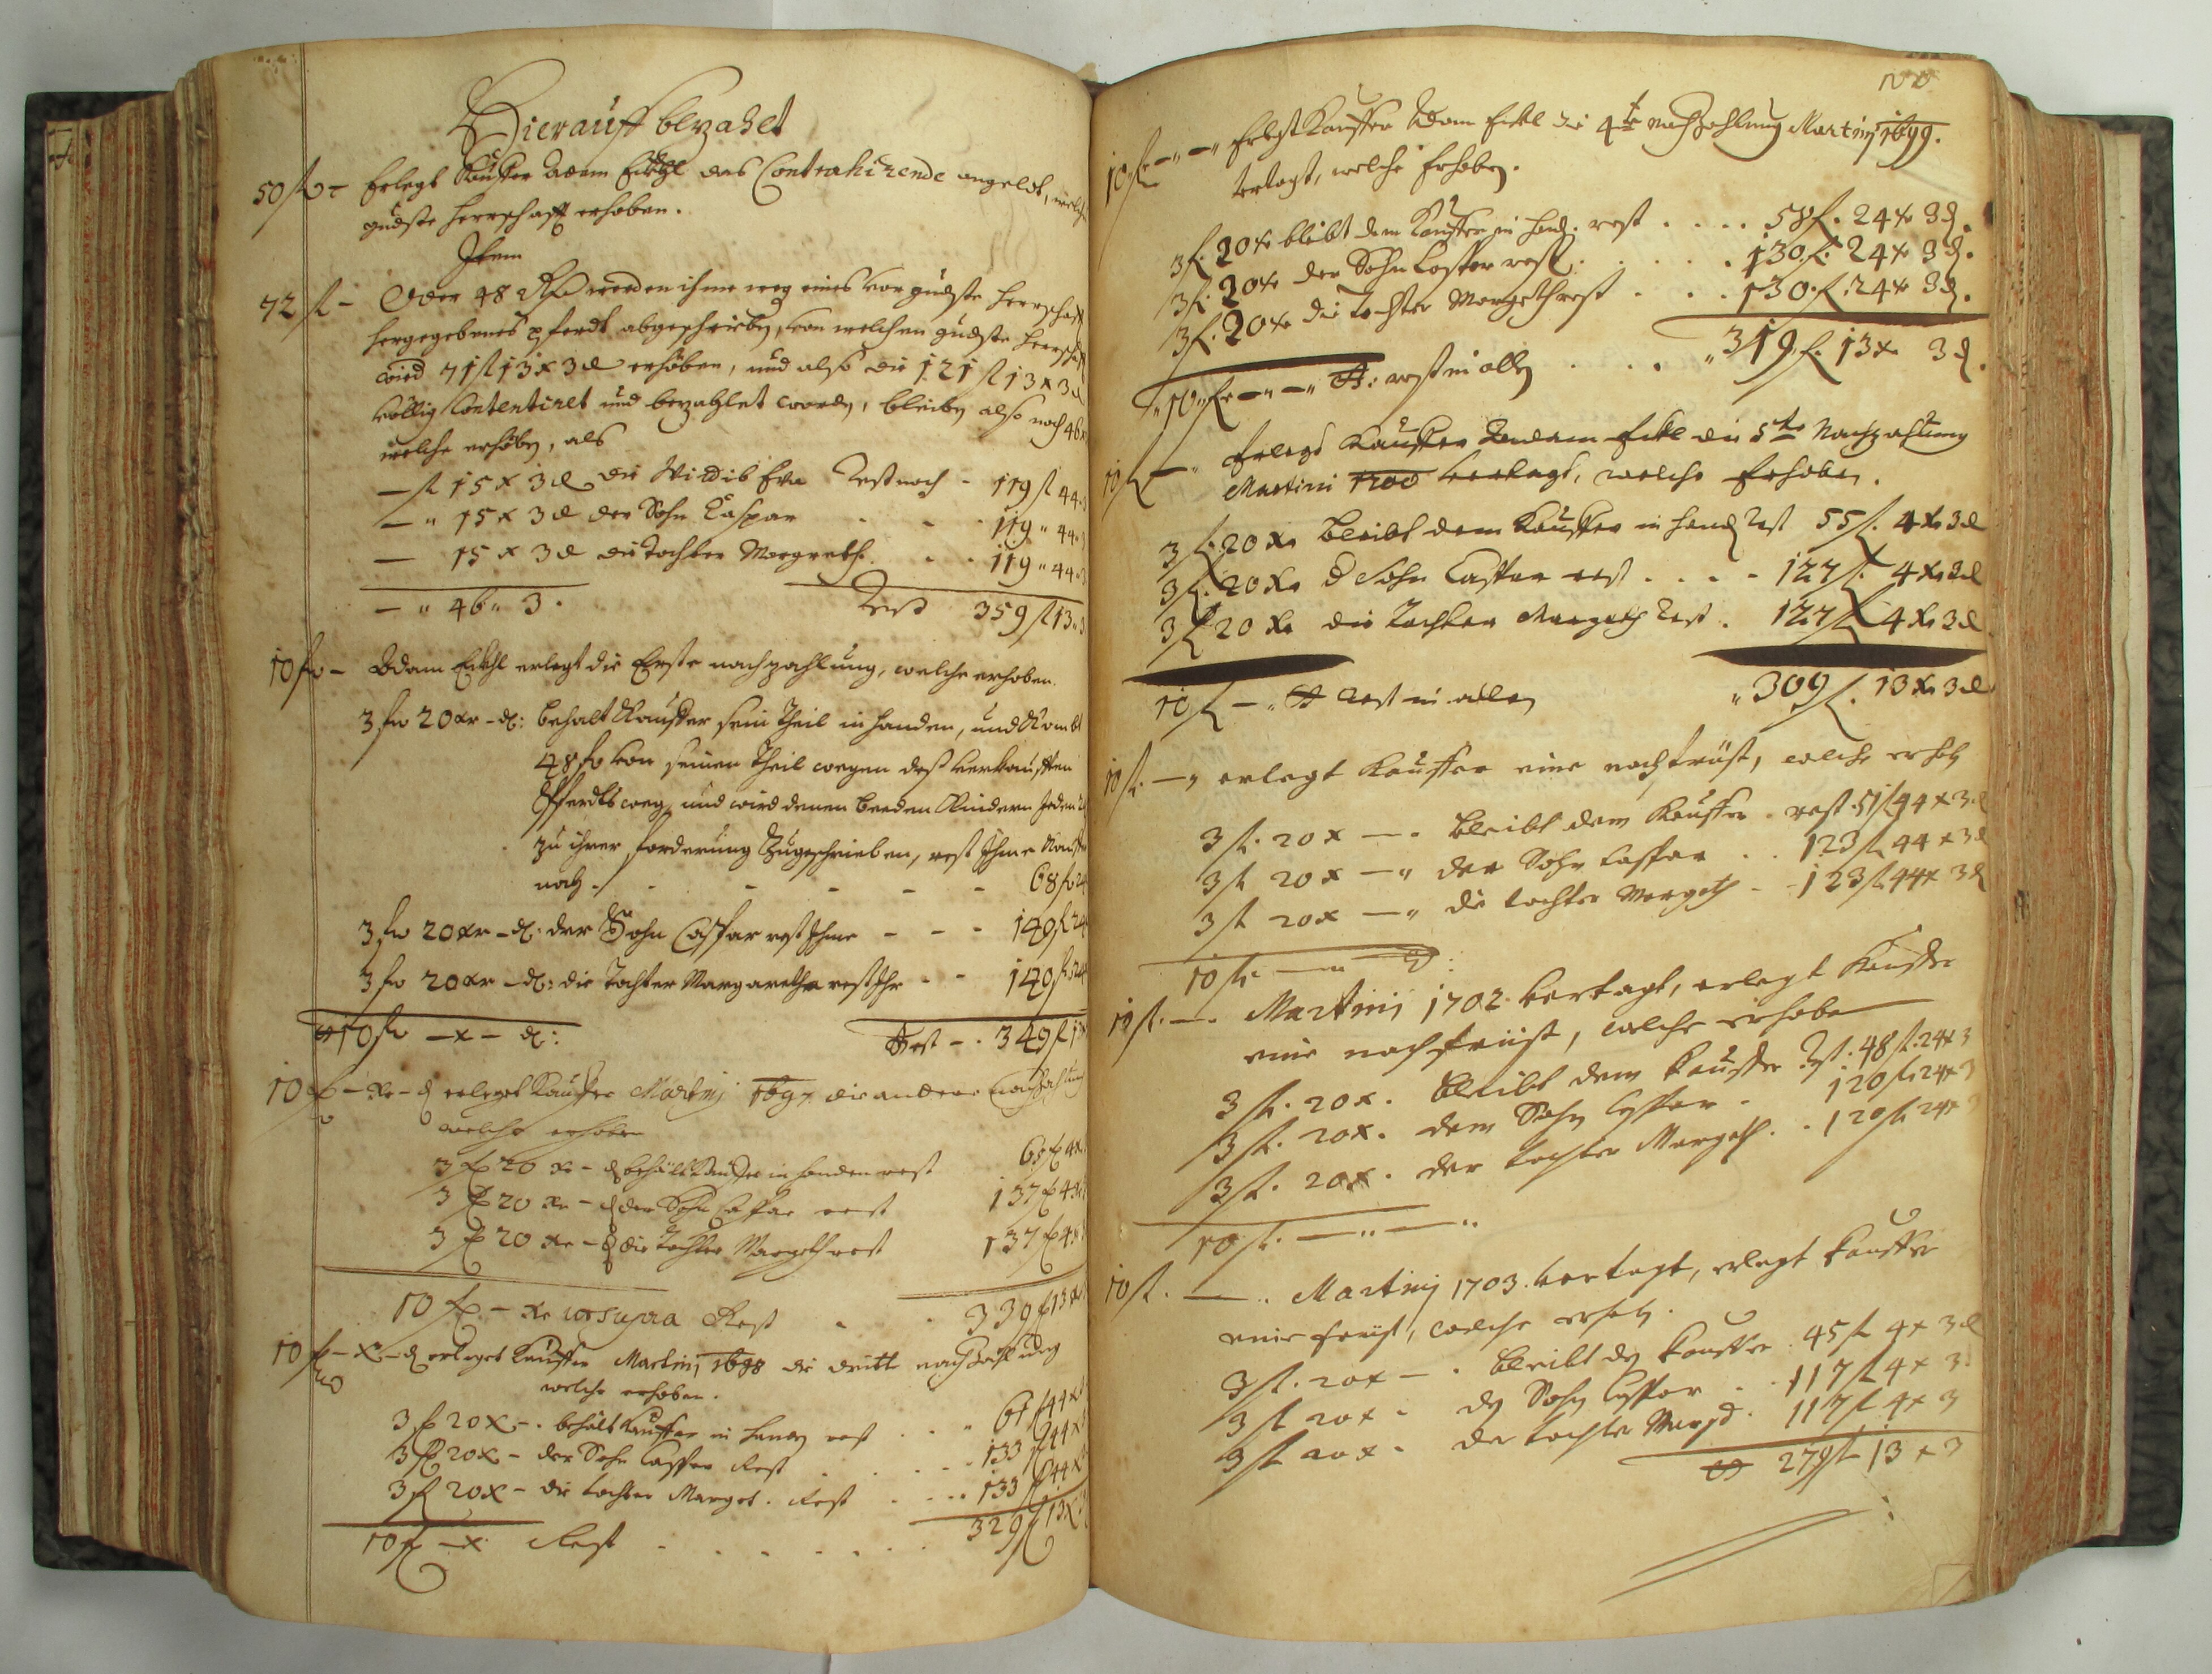 Hierauff bezahet
50 fl - Erlegt Kauffer Adam Eckhl das Contrahirende angeldt, welche
gndste herrschafft erhoben.
Item
72 fl - Oder 48 werden ihme weg eines von gndste herrschafft
hergegebenes pferdt abgeschrieben, von welchen gndste herrschafft
wird 71 fl 13 x 3 d erhoben, und also die 121 fl 13 x 3 d
völlig Contentiret und bezahlet worden, bleiben also noch 46 x
welche erhoben, als
— fl 15 x 3 d die Wittib Eva Rest noch - 119 fl 44
— " 15 x 3 d der Sohn Caspar - - 119 " 44
— 15 x 3 d die Tochter Margreth. - - 119 " 44
— " 46 " 3. Rest 359 fl 13 " 3
10 fl - Adam Eckhl erlegt die Erste nachzahlung, welche erhoben.
3 fl 20 xr - d: behalt Kauffer sein Theil in handen, und kombt
48 fl von seinen Theil wegen deß verkaufften
Pferdts weg, und wird denen beeden Kindern Jeden
zu ihrer forderung Zugeschrieben, rest Ihme Kauffer
noch. - - - - - 68 fl 24
3 fl 20 xr - d: der Sohn Caspar rest Ihme - - - 140 fl 24
3 fl 20 xr - d: die Tochter Margaretha rest Ihr - - 140 fl 24
10 fl - x - d: Rest - . 349 fl 13
10 fl - xr - d erleget Kauffer Martinj 1697 die andere Nachzahlung
welche erhoben
3 fl 20 xr - d behält Kauffer in handen rest 65 fl 4 x
3 fl 20 xr - d der Sohn Caspar rest 137 fl 4 x
3 fl 20 xr - d die Tochter Margeth rest 137 fl 4 x
10 fl - xr ut supra Rest - - 339 fl 13 x
10 fl - x - d erleget Kauffer Martinj 1698 die dritte nachzahlung
welche erhoben.
3 fl 20 x -. behält Kauffer in handen rest . . . 61 fl 44 x
3 fl 20 x - der Sohn Casper Rest . . . 133 fl 44 x
3 fl 20 x - die tochter Marget. Rest . . . 133 fl 44 x
10 fl - x Rest - . . . . . 329 fl 13 x
100
10 fl — " — " Erlegt Kauffer Adam Eckl die 4te nachzahlung Martinj 1699.
vertagt, welche Erhoben.
3 fl. 20 xr bleibt dem Kauffer in handen. rest . . . . 58 fl. 24 xr 3 d.
3 fl. 20 xr der Sohn Casper rest . . . . 130 fl. 24 x 3 d.
3 fl. 20 xr die tochter Margeth rest . . . 130 fl. 24 x 3 d.
" 10 " fl — " — " rest in allen . . . . " 319 fl. 13 x 3 d.
10 fl — " Erlegt Kauffer Adam Eckl die 5te Nachzahlung
Martini 1700 vertagt, welche Erhoben.
3 fl. 20 xr bleibt dem Kauffer in handen Rest 55 fl. 4 xr 3 d
3 fl. 20 xr d Sohn Caspar rest . . . . 127 fl. 4 xr 3 d
3 fl 20 xr die Tochter Margeth Rest . 127 fl 4 xr 3 d
10 fl — " rest in allen " 309 fl. 13 xr 3 d
10 fl. — " erlegt Kauffer eine nachfrist, welche erhoben
3 fl. 20 x — . bleibt dem Kauffer . rest 51 fl 44 x 3 d
3 fl 20 x — " der Sohn Casper . . 123 fl 44 x 3 d
3 fl 20 x — " die tochter Margeth - 123 fl 44 x 3 d
10 fl. — "
10 fl. — . Martinj 1702. vertagt, erlegt Kauffer
eine nachfrist, welche erhoben
3 fl. 20 x. bleibt dem Kauffer Rst. 48 fl. 24 x 3
3 fl. 20 x. dem Sohn Casper . 120 fl. 24 x 3
3 fl. 20 x. der tochter Margeth. . 120 fl 24 x 3
10 fl. — " — "
10 fl. — . Martinj 1703. vertagt, erlegt Kauffer
eine frist, welche erhoben.
3 fl. 20 x — . bleibt den Kauffer . 45 fl 4 x 3 d
3 fl 20 x - den Sohn Casper . . 117 fl 4 x 3
3 fl 20 x - der tochter Margeth . 117 fl 4 x 3
279 fl 13 x 3